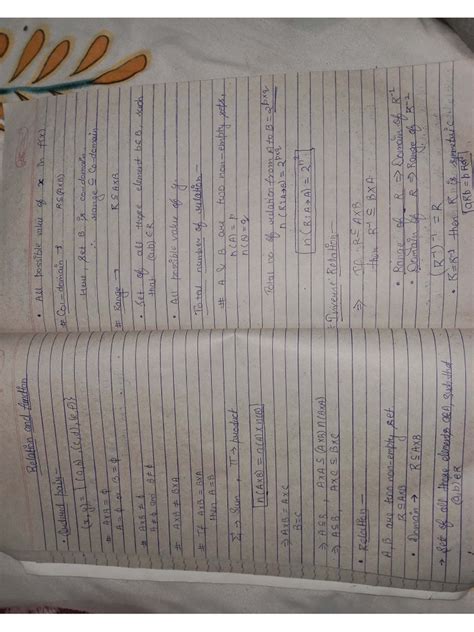 Relation and function
• Ordered pair -
(x, y) = {(a, b), (c, d), (e, f)}
# A×B = ϕ
A = ϕ or B = ϕ
# A×B ≠ ϕ
A ≠ ϕ and B ≠ ϕ
# A×B ≠ B×A
# If A×B = B×A
then A = B
Σ → Sum, Π → product
n(A×B) = n(A) × n(B)
⇒ A×B = A×C
B = C
⇒ A ⊆ B, A×A ⊆ (A×B) ∩ (B×A)
⇒ A ⊆ B, A×C ⊆ B×C
• Relation —
A, B are two non-empty set
R ⊆ A×B
• Domain → R ⊆ A×B
→ Set of all those elements a∈A such that
(a, b) ∈ R
• All possible value of x in f(x)
# Co-domain → R ⊆ (A×B)
Here, Set B is co-domain
range ⊆ Co-domain
# Range → R ⊆ A×B
• Set of all those element b∈B, such
that (a, b) ∈ R
• All possible value of y.
Total number of relation
# A & B are two non-empty sets
n(A) = p
n(B) = q
Total no of relation from A to B = 2^pq
n(R: A→A) = 2^n²
Inverse Relation -
⇒ If R ⊆ A×B
then R⁻¹ ⊆ B×A
• Range of R ⇒ Domain of R⁻¹
• Domain of R ⇒ Range of R⁻¹
(R⁻¹)⁻¹ = R
• R = R⁻¹ then R is symmetric